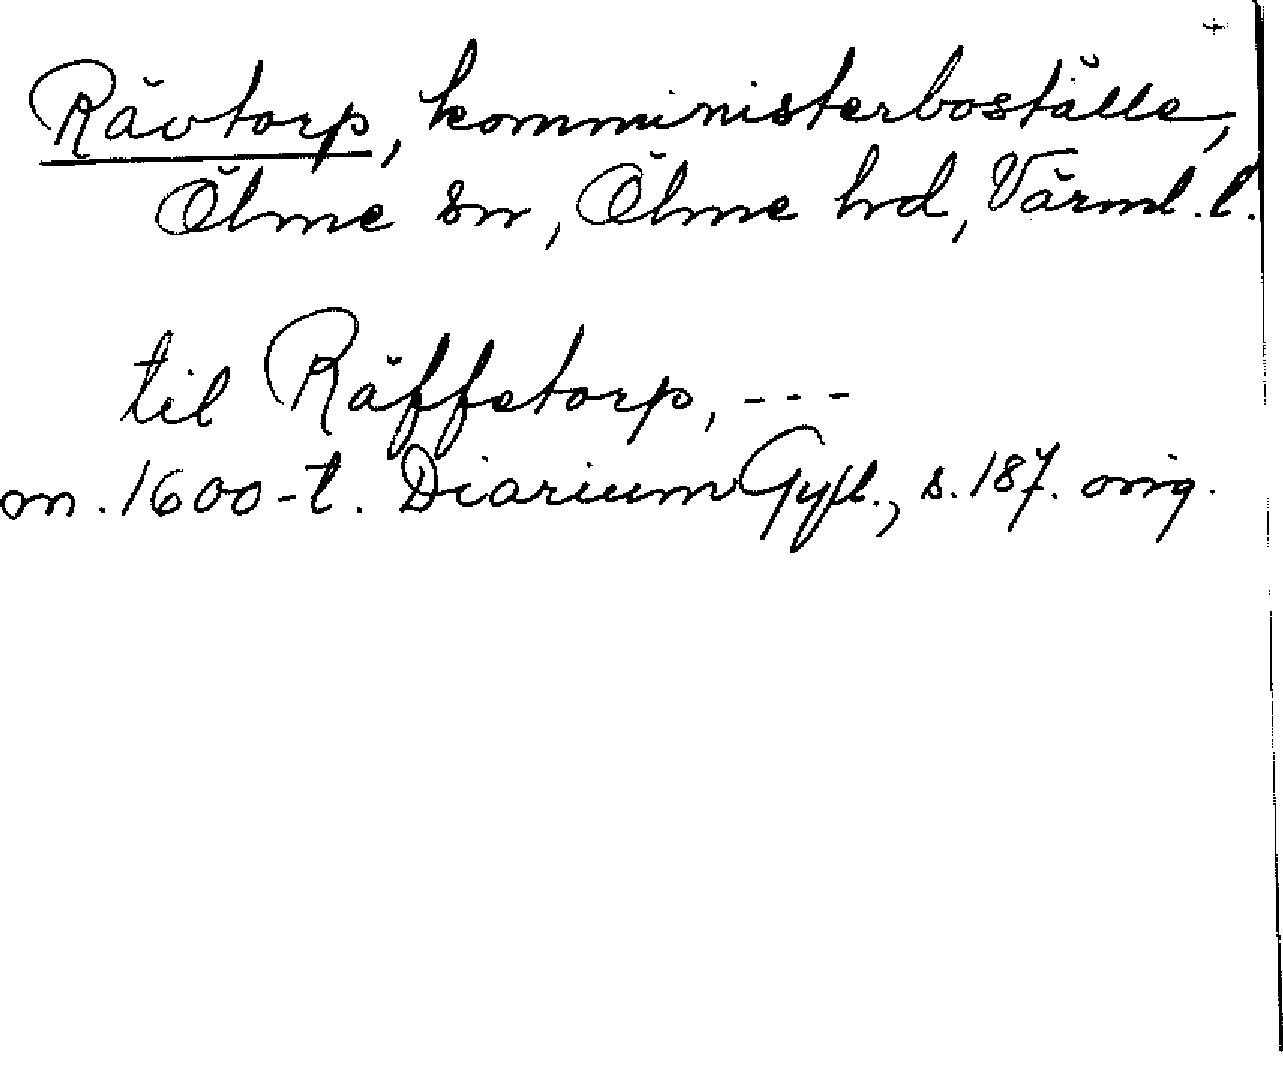 +
Rävtorp, komministerboställe,
Ölme sn, Ölme hd, Värml. l.
til Räffetorp, ---
m. 1600-t. Diarium Gyll., s. 187. orig.